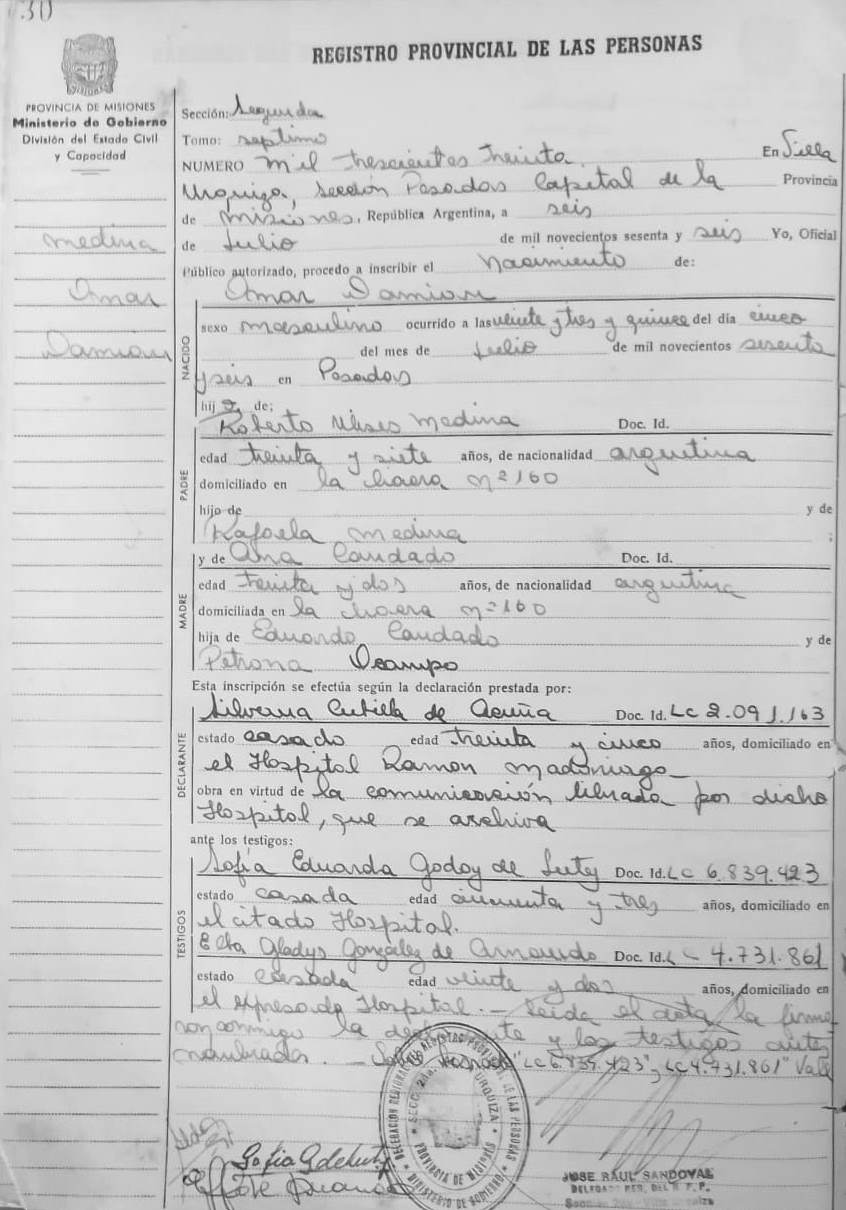 30
REGISTRO PROVINCIAL DE LAS PERSONAS
PROVINCIA DE MISIONES
Ministerio de Gobierno
División del Estado Civil
y Capacidad
Medina
Omar
Damian
Sección: Segunda
Tomo: septimo
NUMERO mil trescientos treinta En Villa
Urquiza, Sección Posadas Capital de la Provincia
de misiones, República Argentina, a seis
de Julio de mil novecientos sesenta y seis Yo, Oficial
Público autorizado, procedo a inscribir el nacimiento de:
Omar Damian
NACIDO
sexo masculino ocurrido a las veinte y tres y quince del día cinco
del mes de Julio de mil novecientos sesenta
y seis en Posadas
hijo de:
Roberto Ulises Medina Doc. Id.
PADRE
edad treinta y siete años, de nacionalidad argentina
domiciliado en la chacra nº 160
hijo de y de
Rafaela Medina ;
y de Ana Caudado Doc. Id.
MADRE
edad treinta y dos años, de nacionalidad argentina
domiciliada en la chacra nº 160
hija de Eduardo Caudado y de
Petrona Ocampo
Esta inscripción se efectúa según la declaración prestada por:
Silveria de Acuña Doc. Id. LC 2.091.163
DECLARANTE
estado casado edad treinta y cinco años, domiciliado en
el Hospital Ramon Madariaga
obra en virtud de la comunicación librada por dicho
Hospital, que se archiva
ante los testigos:
Sofía Eduarda Godoy de Doc. Id. LC 6.839.423
TESTIGOS
estado casada edad cincuenta y tres años, domiciliado en
el citado Hospital.
Elba Gladys González de Doc. Id. LC 4.731.861
estado casada edad veinte y dos años, domiciliado en
el expresado Hospital.— Leida el acta, la firman
con conmigo la y los testigos antes
nombrados.— "LC 6.839.423", LC 4.731.861" Vale
DELEGACION REGISTRO PROVINCIAL DE LAS PERSONAS
SECC. 2da. URQUIZA
PROVINCIA DE MISIONES
MINISTERIO DE GOBIERNO
Sofia G de
JOSE RAUL SANDOVAL